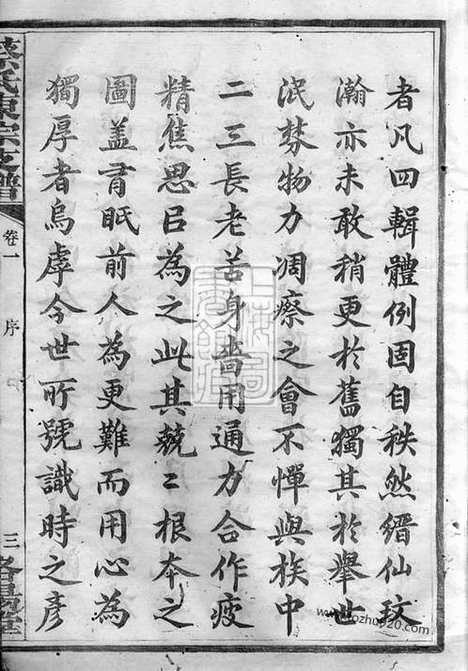 者凡四輯體例固自秩然縉仙玟
瀚亦未敢稍更於舊獨其於舉世
泯棼物力凋瘵之會不憚與族中
二三長老苦身嗇用通力合作疲
精焦思㠯為之此其兢〻根本之
圖盖肎眂前人為更難而用心為
獨厚者烏虖今世所號識時之彥
氏東宗支譜
卷一
序
三